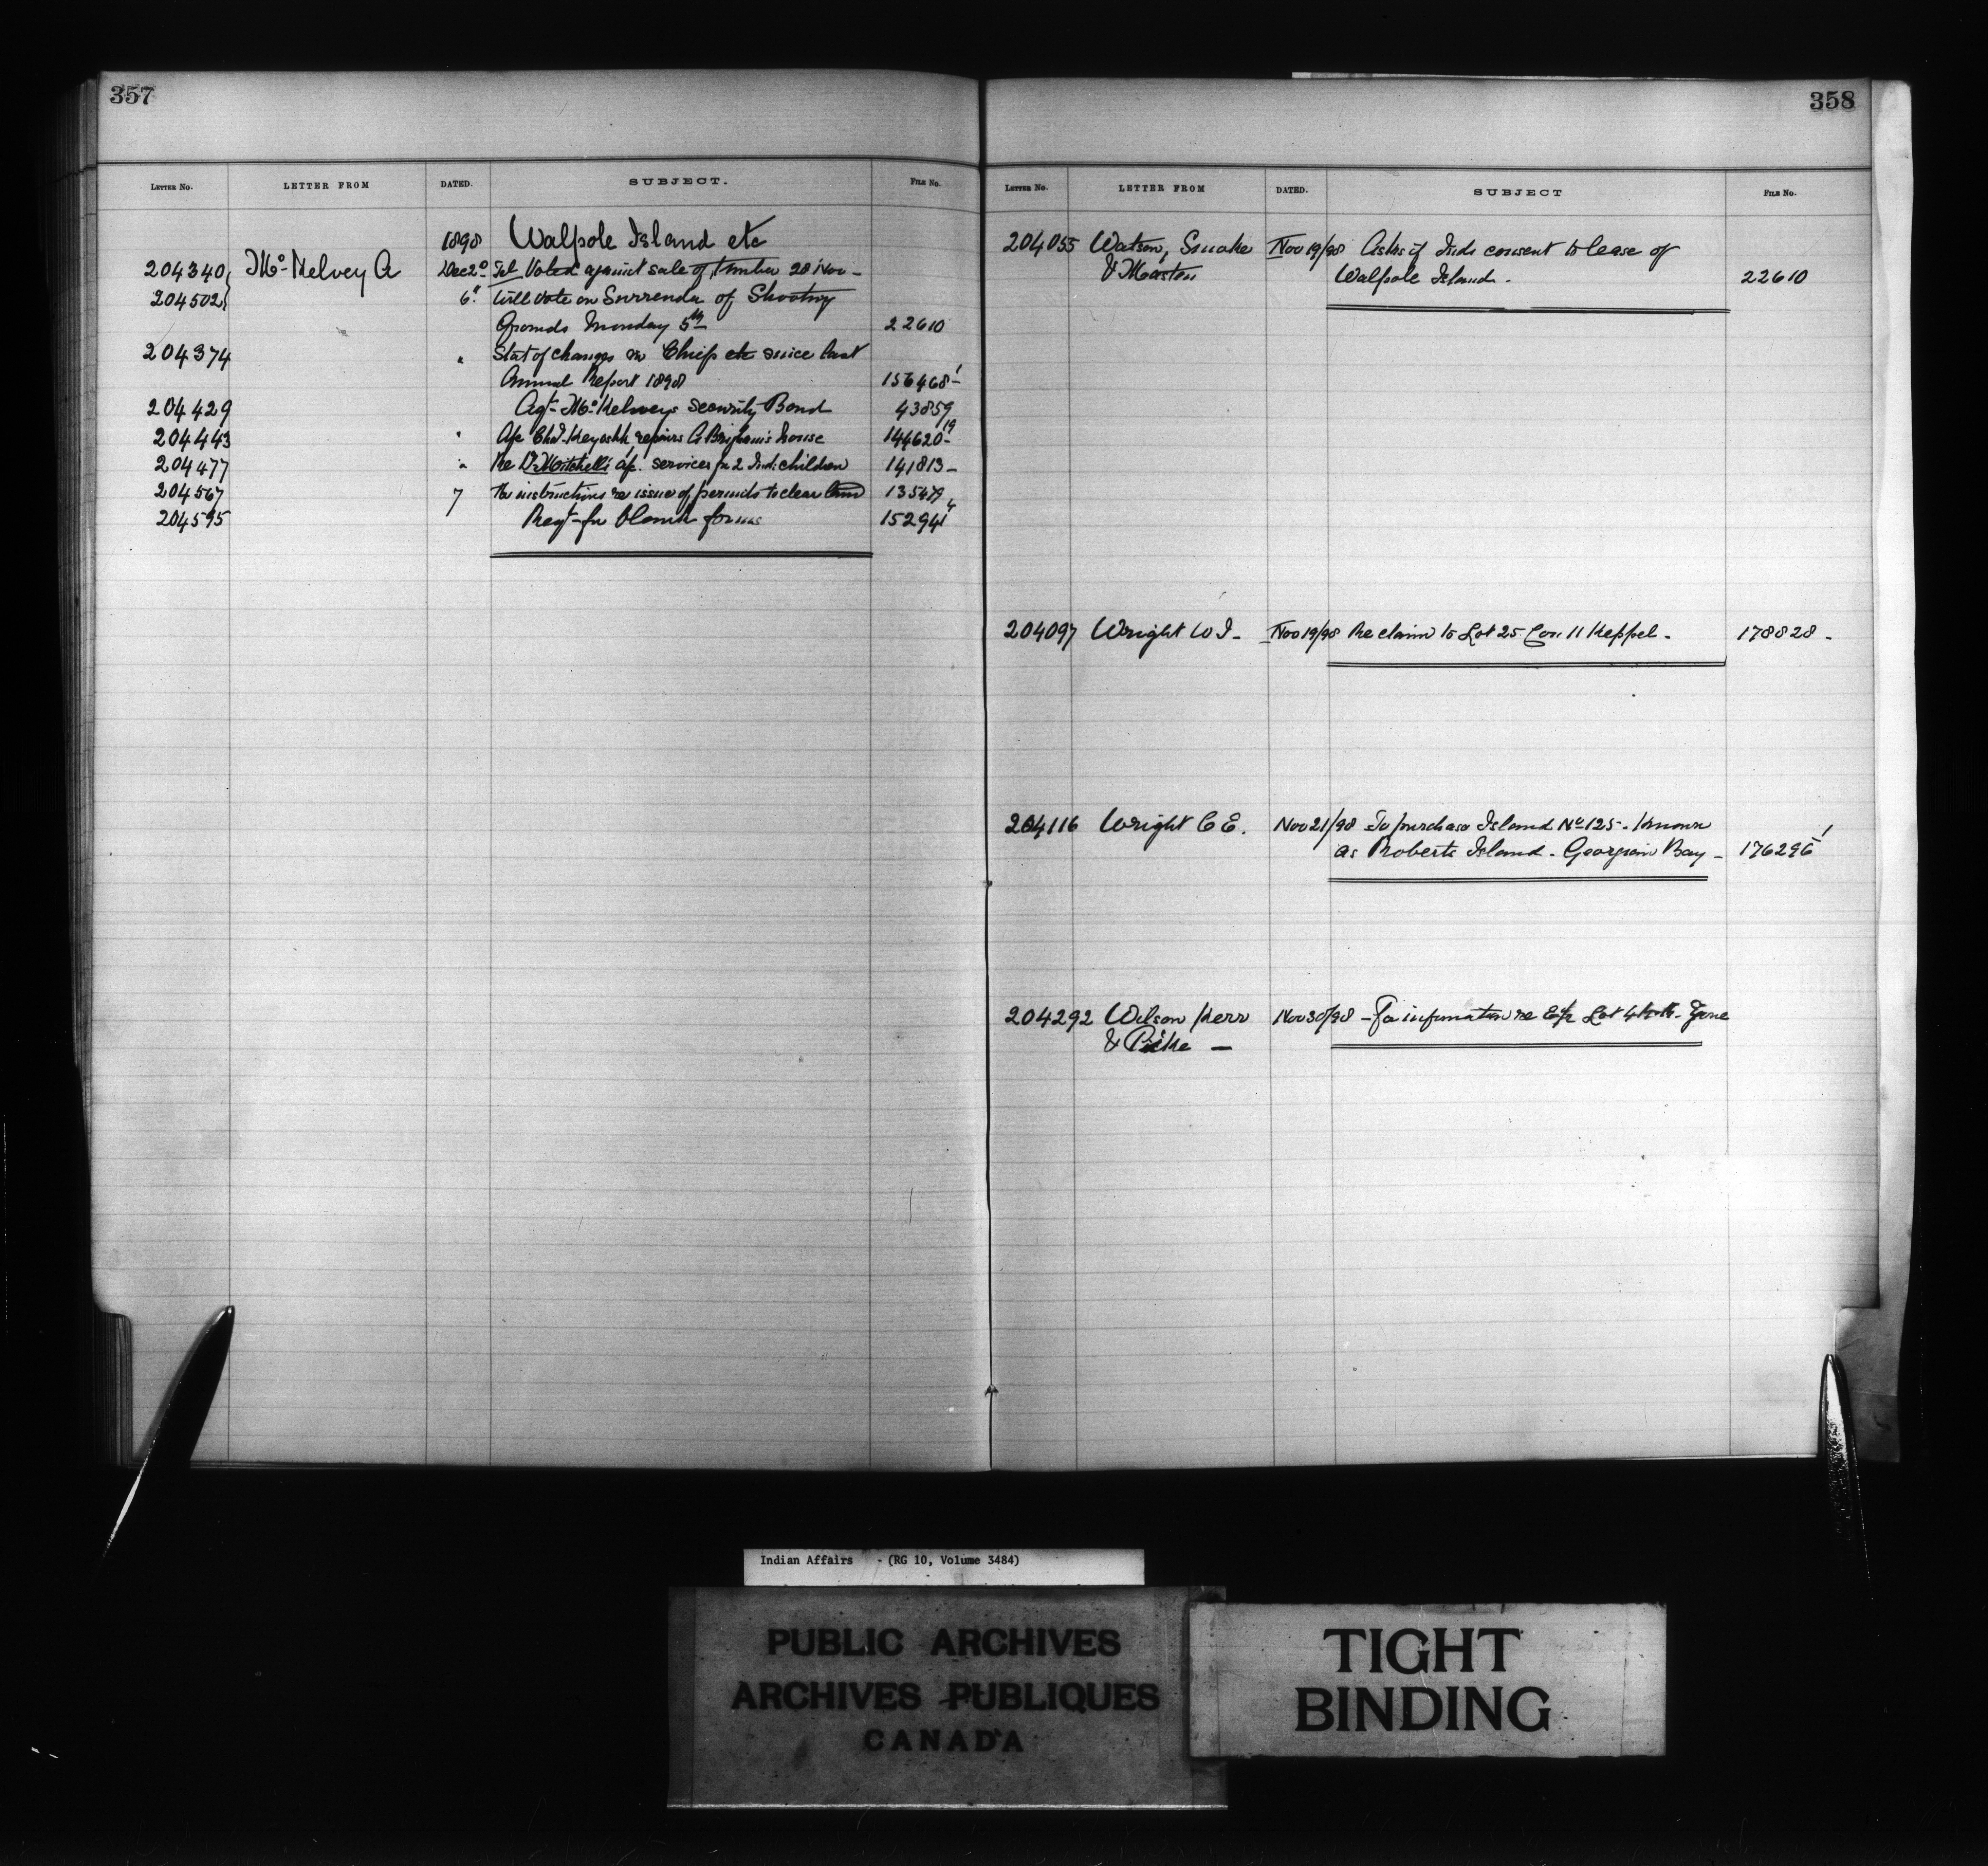 357
LETTER No. LETTER FROM DATED. SUBJECT. FILE No.
1898 Walpole Island etc
204340 McKelvey A Dec 2d Tel. Voted against sale of timber 28 Nov -
204502 6" Will vote on Surrender of Shooting
Grounds Monday 5th 22610
204374 " Stat of changes in Chiefs etc since last
Annual Report 1898 156468-1
204429 Agt McKelveys Security Bond 43859
204443 " repairs house 144620-19
204477 " Re Dr Mitchells a/c. services for 2 Ind: children 141813-
204567 7 For instructions re issue of permits to clear land
204595 Reqt for blank forms 152941
358
LETTER No. LETTER FROM DATED. SUBJECT FILE No.
204055 Watson, Smoke Nov 19/98 Asks if Inds consent to lease of
& Masten Walpole Island. 22610
204097 Wright W I - Nov 19/98 Re claim to Lot 25 Con. 11 Keppel. 178828 -
204116 Wright C E. Nov 21/98 To purchase Island No 125 - Known
as Roberts Island - Georgian Bay -
204292 Wilson Kerr Nov 30/98 - For information re Lot
& Pike -
Indian Affairs - (RG 10, Volume 3484)
PUBLIC ARCHIVES
ARCHIVES PUBLIQUES
CANADA
TIGHT
BINDING